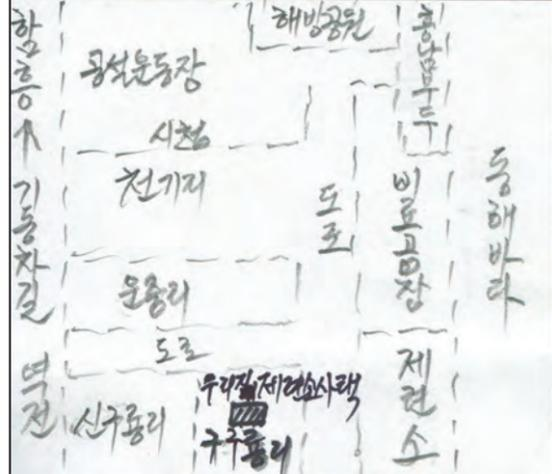 함흥↑
기동차길
역전
공설운동장
시청
천기리
운중리
도로
신구룡리
우리집 제련소사택
구구룡리
해방공원
도로
흥남부두
비료공장
제련소
동해바다